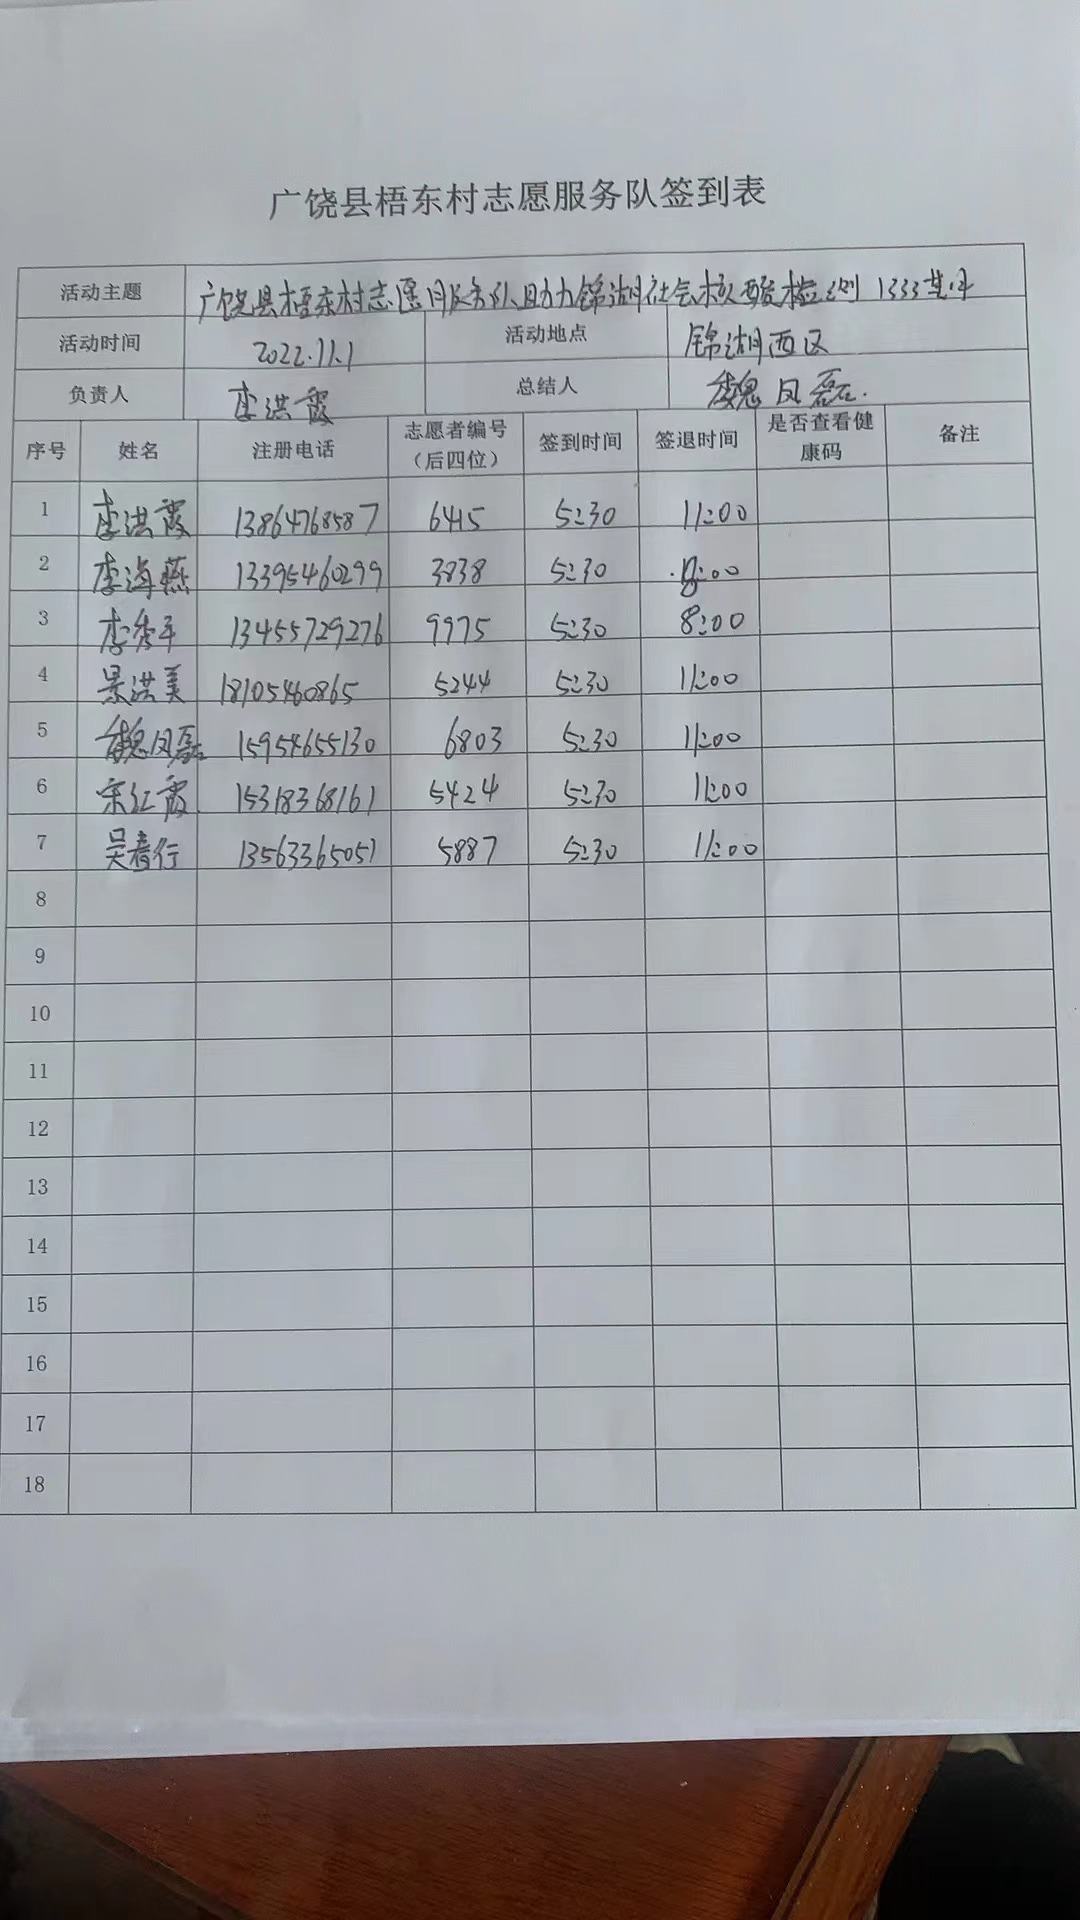 广饶县梧东村志愿服务队签到表
活动主题 广饶县梧东村志愿服务队助力锦湖社会核酸检测1333其中
活动时间 2022.11.1 活动地点 锦湖西区
负责人 李洪霞 总结人 魏凤磊.
序号 姓名 注册电话 志愿者编号（后四位） 签到时间 签退时间 是否查看健康码 备注
1 李洪霞 13864768587 6415 5:30 11:00
2 李海燕 13395460299 3838 5:30 8:00
3 李秀平 13455729276 9975 5:30 8:00
4 景洪美 18105460865 5244 5:30 11:00
5 魏凤磊 15954655130 6803 5:30 11:00
6 宋红霞 15318368161 5424 5:30 11:00
7 吴春行 13563365051 5887 5:30 11:00
8
9
10
11
12
13
14
15
16
17
18